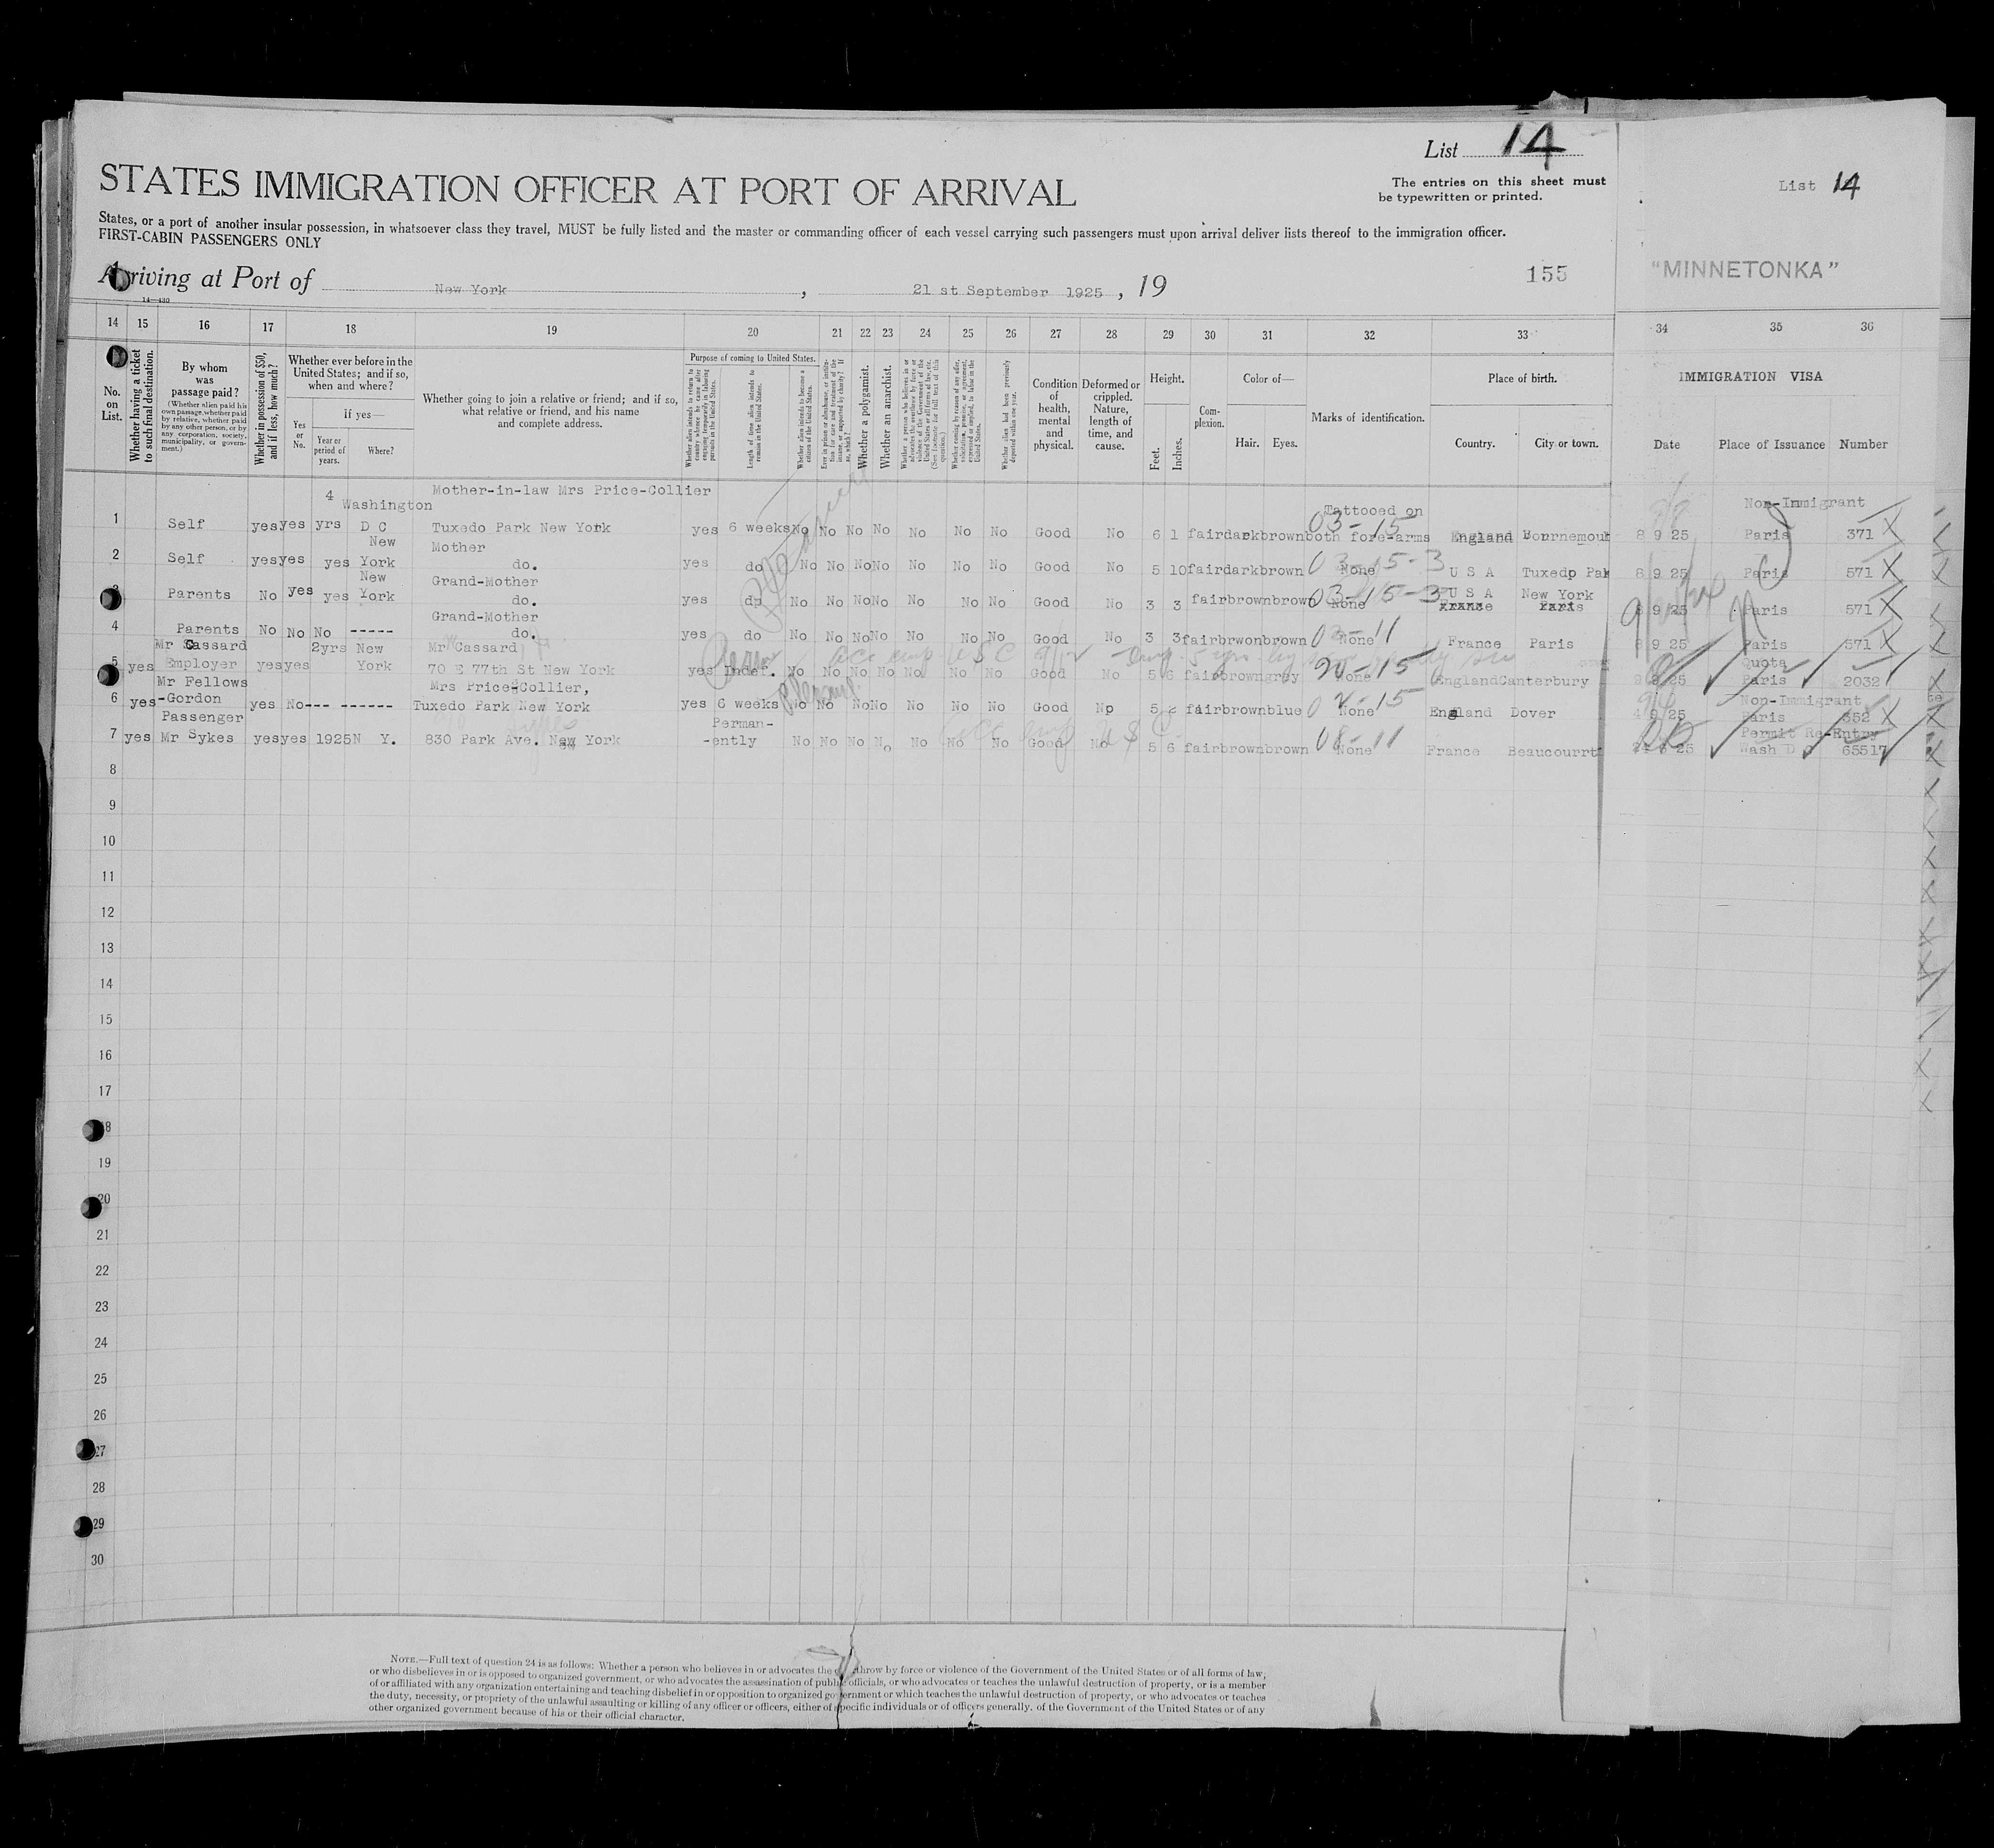 List 14
STATES IMMIGRATION OFFICER AT PORT OF ARRIVAL
The entries on this sheet must
be typewritten or printed.
List 14
States, or a port of another insular possession, in whatsoever class they travel, MUST be fully listed and the master or commanding officer of each vessel carrying such passengers must upon arrival deliver lists thereof to the immigration officer.
FIRST-CABIN PASSENGERS ONLY
"MINNETONKA"
Arriving at Port of New York, 21 st September 1925, 19
155
14—430
14 15 16 17 18 19 20 21 22 23 24 25 26 27 28 29 30 31 32 33 34 35 36
No. on List.
Whether having a ticket to such final destination.
By whom was passage paid?
(Whether alien paid his own passage, whether paid by relative, whether paid by any other person, or by any corporation, society, municipality, or government.)
Whether in possession of $50, and if less, how much?
Whether ever before in the United States; and if so, when and where?
Yes or No.
If yes—
Year or period of years.
Where?
Whether going to join a relative or friend; and if so, what relative or friend, and his name and complete address.
Purpose of coming to United States.
Whether alien intends to return to country whence he came after engaging temporarily in laboring pursuits in the United States.
Length of time alien intends to remain in the United States.
Whether alien intends to become a citizen of the United States.
Whether a polygamist.
Whether an anarchist.
Whether alien had been previously deported within one year.
Condition of health, mental and physical.
Deformed or crippled. Nature, length of time, and cause.
Height.
Feet.
Inches.
Complexion.
Color of—
Hair.
Eyes.
Marks of identification.
Place of birth.
Country.
City or town.
IMMIGRATION VISA
Date
Place of Issuance
Number
4 Washington Mother-in-law Mrs Price-Collier Tattooed on Non-Immigrant
1 Self yes yes yrs D C Tuxedo Park New York yes 6 weeks No No No No No No No Good No 6 1 fair dark brown both fore-arms England Bournemout 8 9 25 Paris 371
03-15
New Mother
2 Self yes yes yes York do. yes do No No No No No No No Good No 5 10 fair dark brown None U S A Tuxedo Pak 8 9 25 Paris 571
03-15-3
New Grand-Mother U S A New York
3 Parents No yes yes York do. yes do No No No No No No No Good No 3 3 fair brown brown None France Paris 8 9 25 Paris 571
03-15-3
Grand-Mother
4 Parents No No No ----- do. yes do No No No No No No No Good No 3 3 fair brwon brown None France Paris 8 9 25 Paris 571
Mr Cassard 2yrs New Mr Cassard Quota
5 yes Employer yes yes York 70 E 77th St New York yes Indef. No No No No No No No Good No 5 6 fair brown grey None England Canterbury 25 Paris 2032
Mr Fellows Mrs Price-Collier, Non-Immigrant
6 yes -Gordon yes No --- ------ Tuxedo Park New York yes 6 weeks No No No No No No No Good Np 5 fair brown blue None England Dover 4 9 25 Paris 352
02-15
Passenger Perman- Permit Re-Entry
7 yes Mr Sykes yes yes 1925 N Y. 830 Park Ave. New York -ently No No No No No No No Good No 5 6 fair brown brown None France Beaucourrt 25 Wash D C 65517
08-11
8
9
10
11
12
13
14
15
16
17
18
19
20
21
22
23
24
25
26
27
28
29
30
NOTE.—Full text of question 24 is as follows: Whether a person who believes in or advocates the overthrow by force or violence of the Government of the United States or of all forms of law,
or who disbelieves in or is opposed to organized government, or who advocates the assassination of public officials, or who advocates or teaches the unlawful destruction of property, or is a member
of or affiliated with any organization entertaining and teaching disbelief in or opposition to organized government or which teaches the unlawful destruction of property, or who advocates or teaches
the duty, necessity, or propriety of the unlawful assaulting or killing of any officer or officers, either of specific individuals or of officers generally, of the Government of the United States or of any
other organized government because of his or their official character.